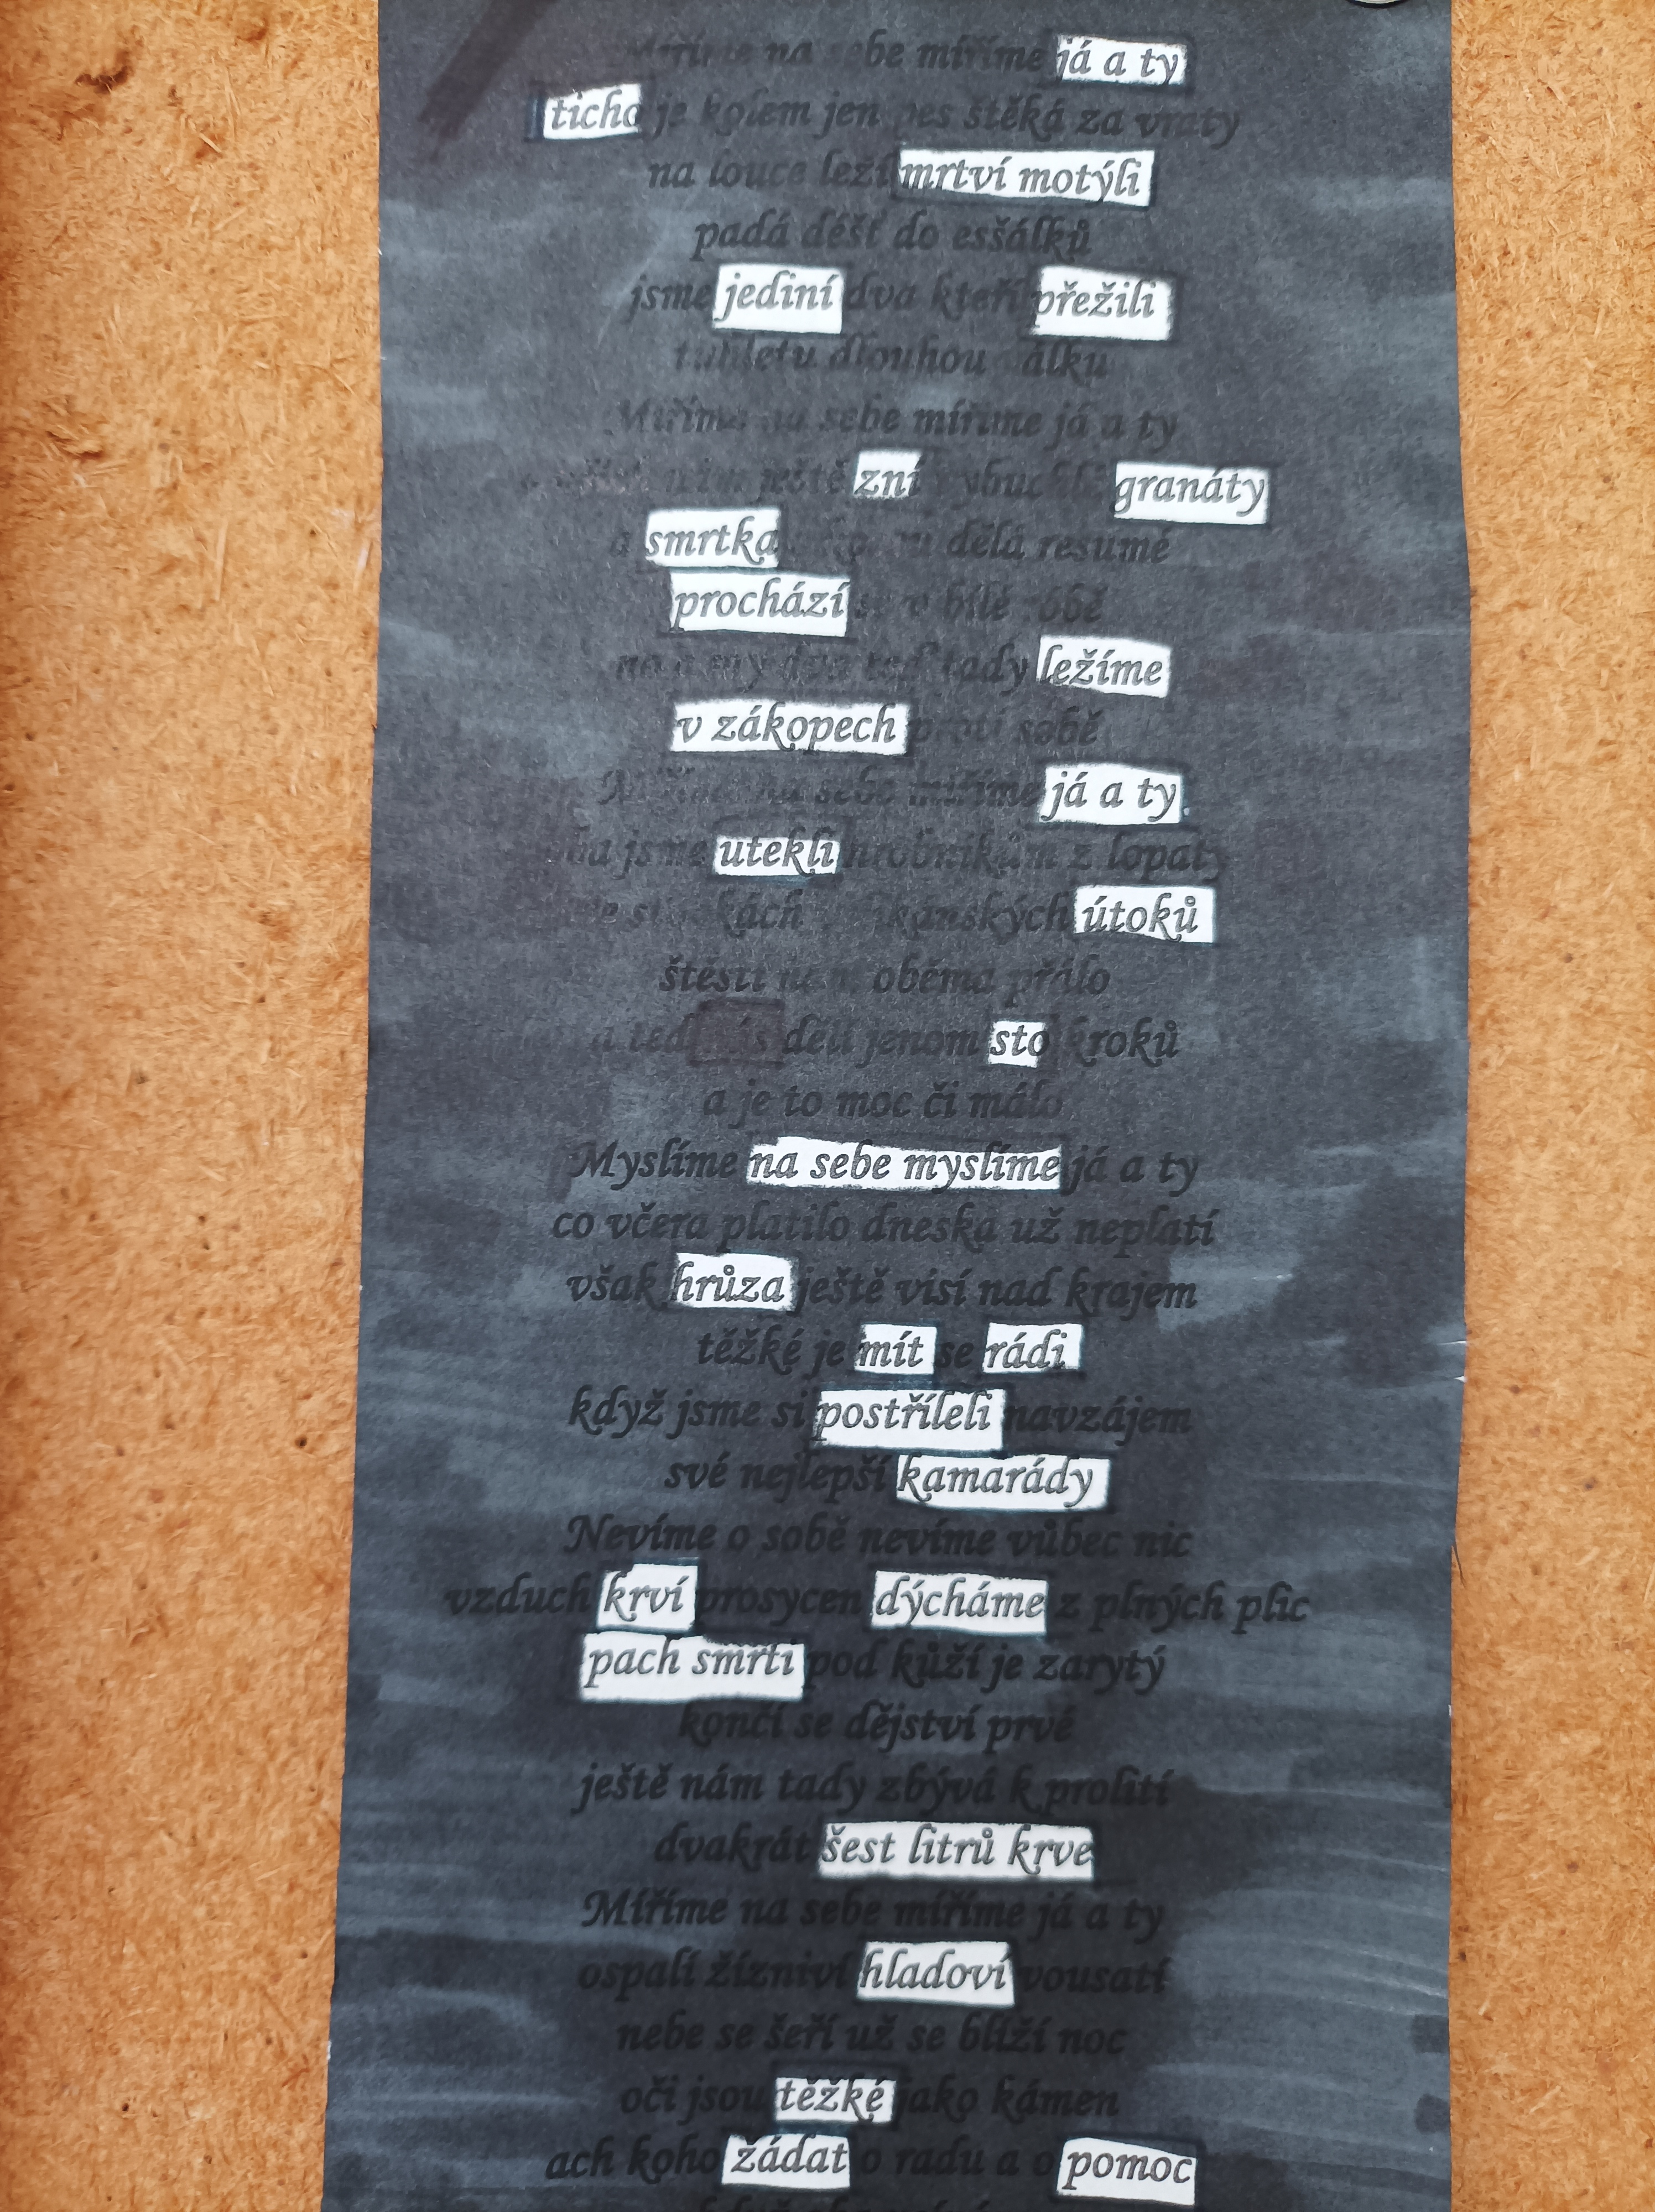 na sebe míříme já a ty
ticho je kolem jen pes štěká za vraty
na louce leží mrtví motýli
padá déšť do esšálků
jsme jediní dva kteří přežili
tuhletu dlouhou válku
Míříme na sebe míříme já a ty
ještě zní granáty
a smrtka dělá resumé
prochází se v bílé róbě
no a my dva teď tady ležíme
v zákopech proti sobě
Míříme na sebe míříme já a ty
oba jsme utekli hrobníkům z lopaty
útoků
štěstí nám oběma přálo
a teď nás dělí jenom sto kroků
a je to moc či málo
Myslíme na sebe myslíme já a ty
co včera platilo dneska už neplatí
však hrůza ještě visí nad krajem
těžké je mít se rádi
když jsme si postříleli navzájem
své nejlepší kamarády
Nevíme o sobě nevíme vůbec nic
vzduch krví prosycen dýcháme z plných plic
pach smrti pod kůží je zarytý
končí se dějství prvé
ještě nám tady zbývá k prolití
dvakrát šest litrů krve
Míříme na sebe míříme já a ty
ospalí žízniví hladoví vousatí
nebe se šeří už se blíží noc
oči jsou těžké jako kámen
ach koho žádat o radu a o pomoc